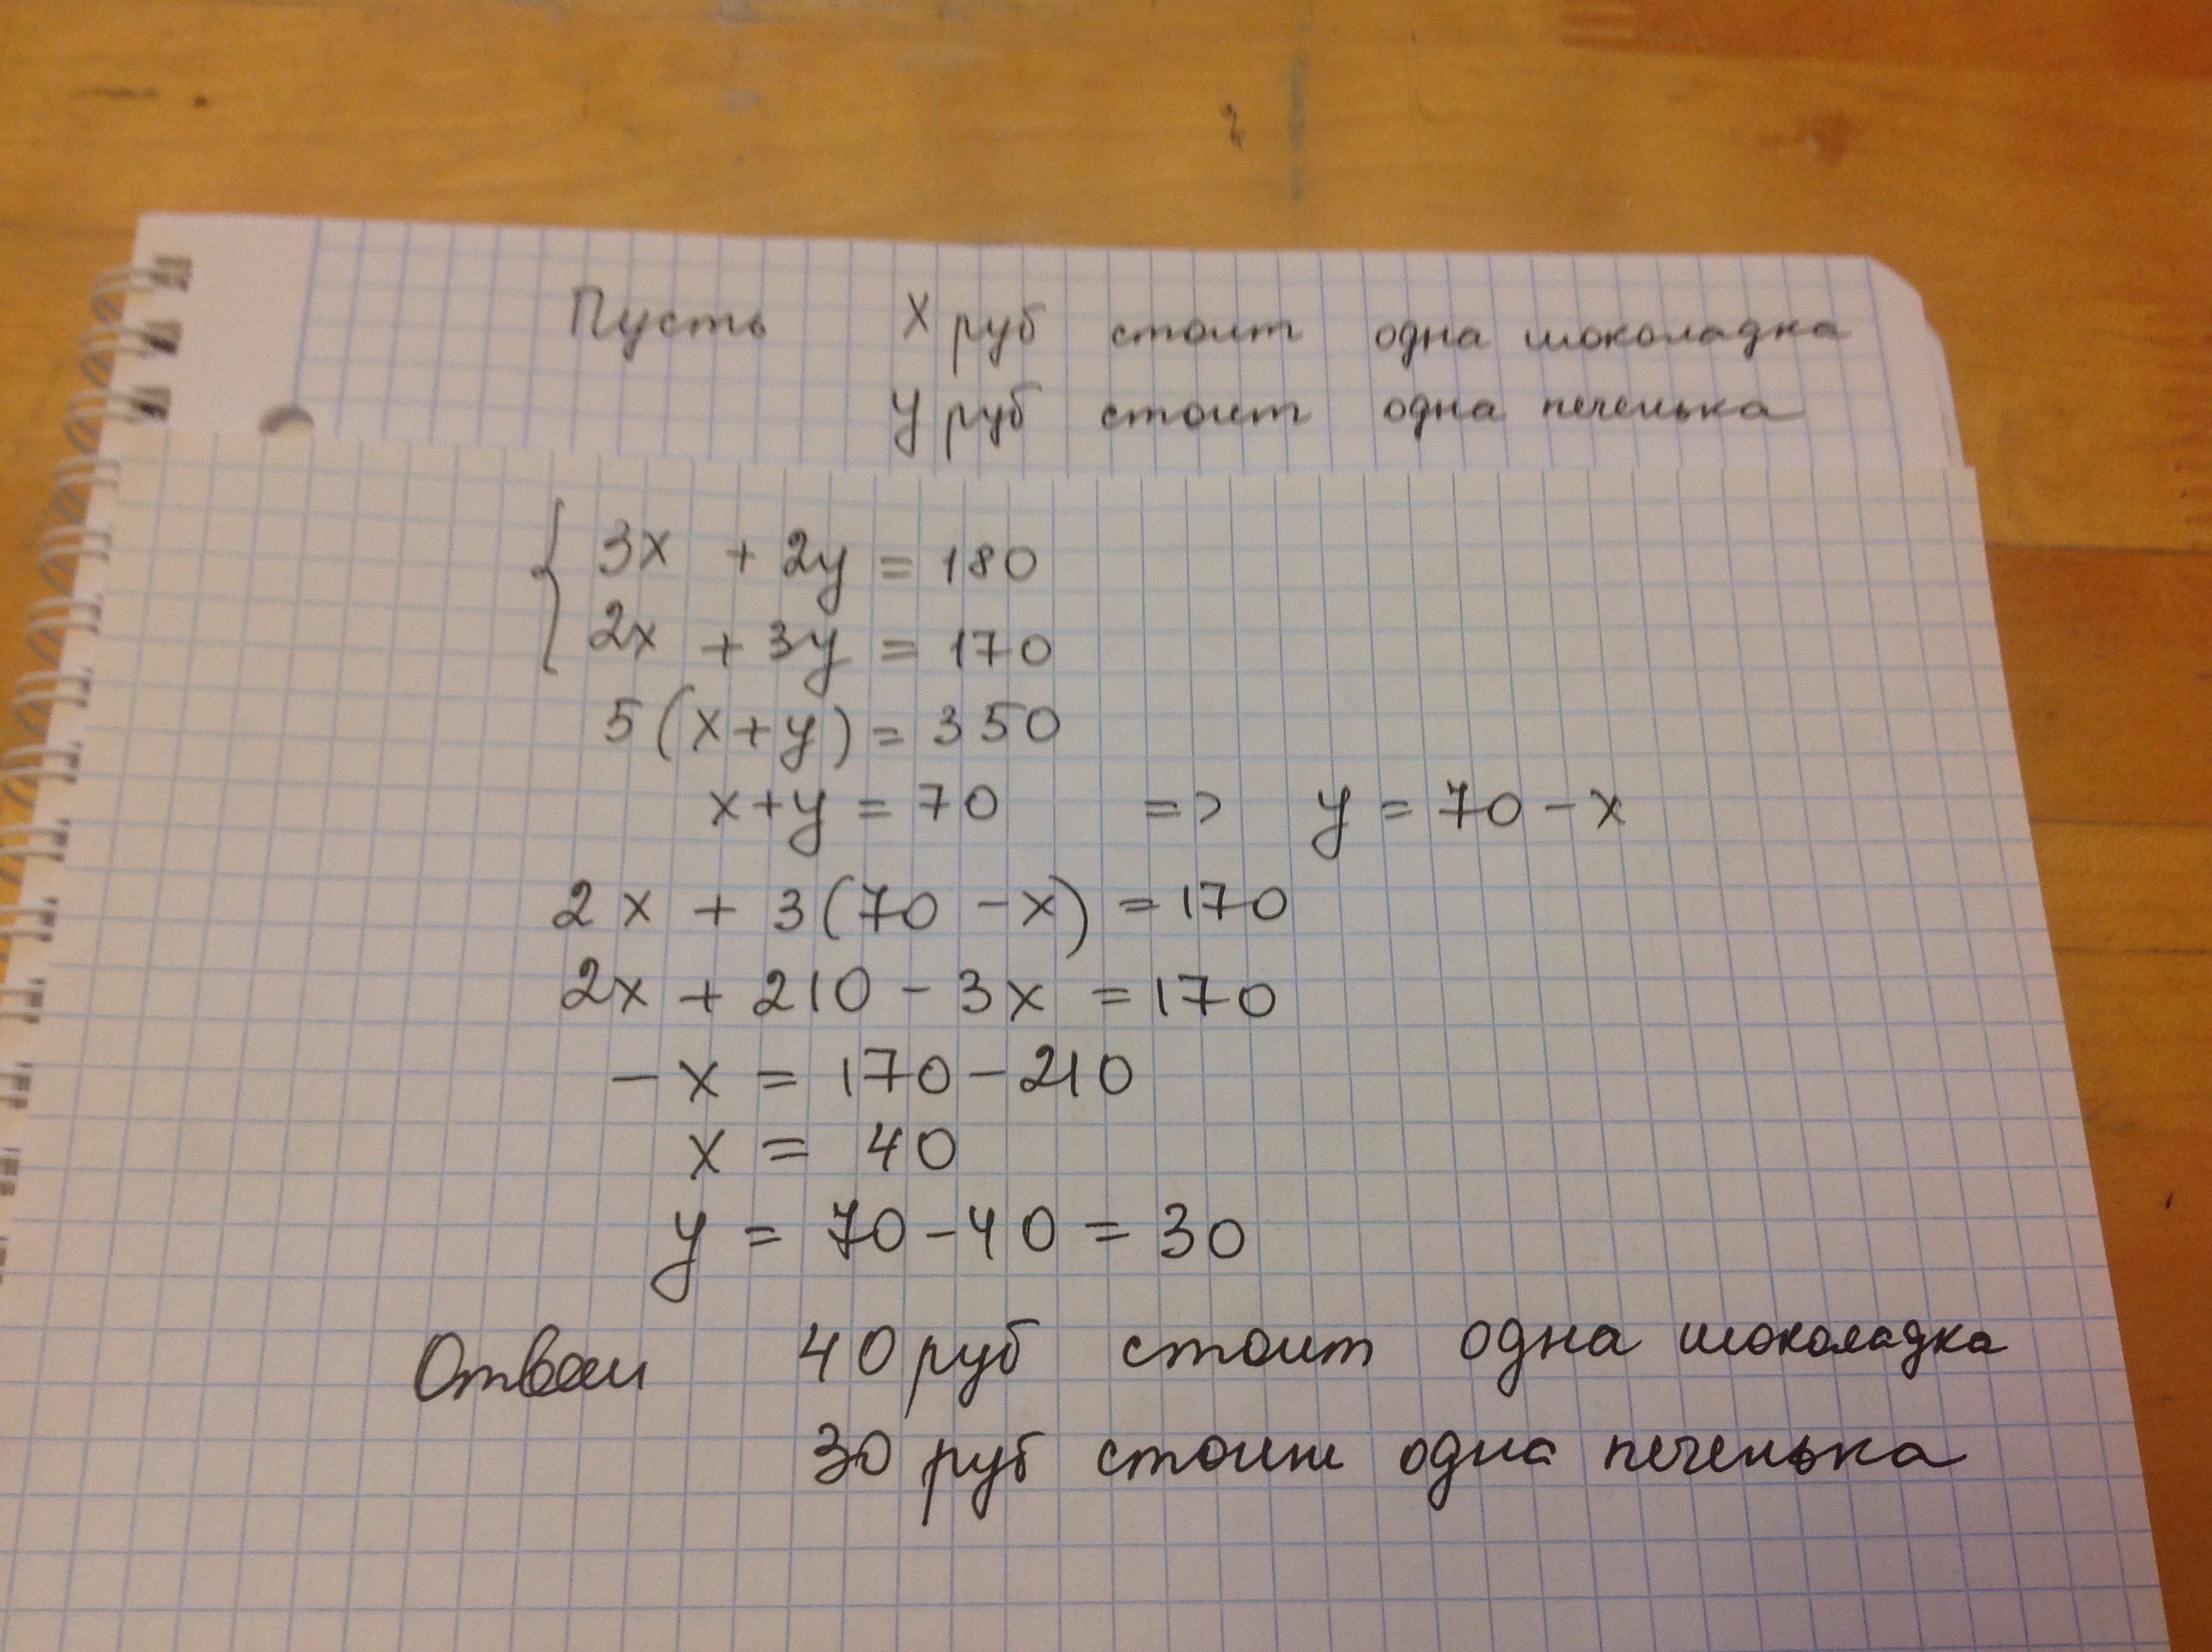 Пусть х руб стоит одна шоколадка
у руб стоит одна печенька
{ 3х + 2у = 180
2х + 3у = 170
5(х+у) = 350
х+у = 70 => у = 70 - х
2х + 3(70 - х) = 170
2х + 210 - 3х = 170
- х = 170 - 210
х = 40
у = 70 - 40 = 30
Ответ 40 руб стоит одна шоколадка
30 руб стоит одна печенька